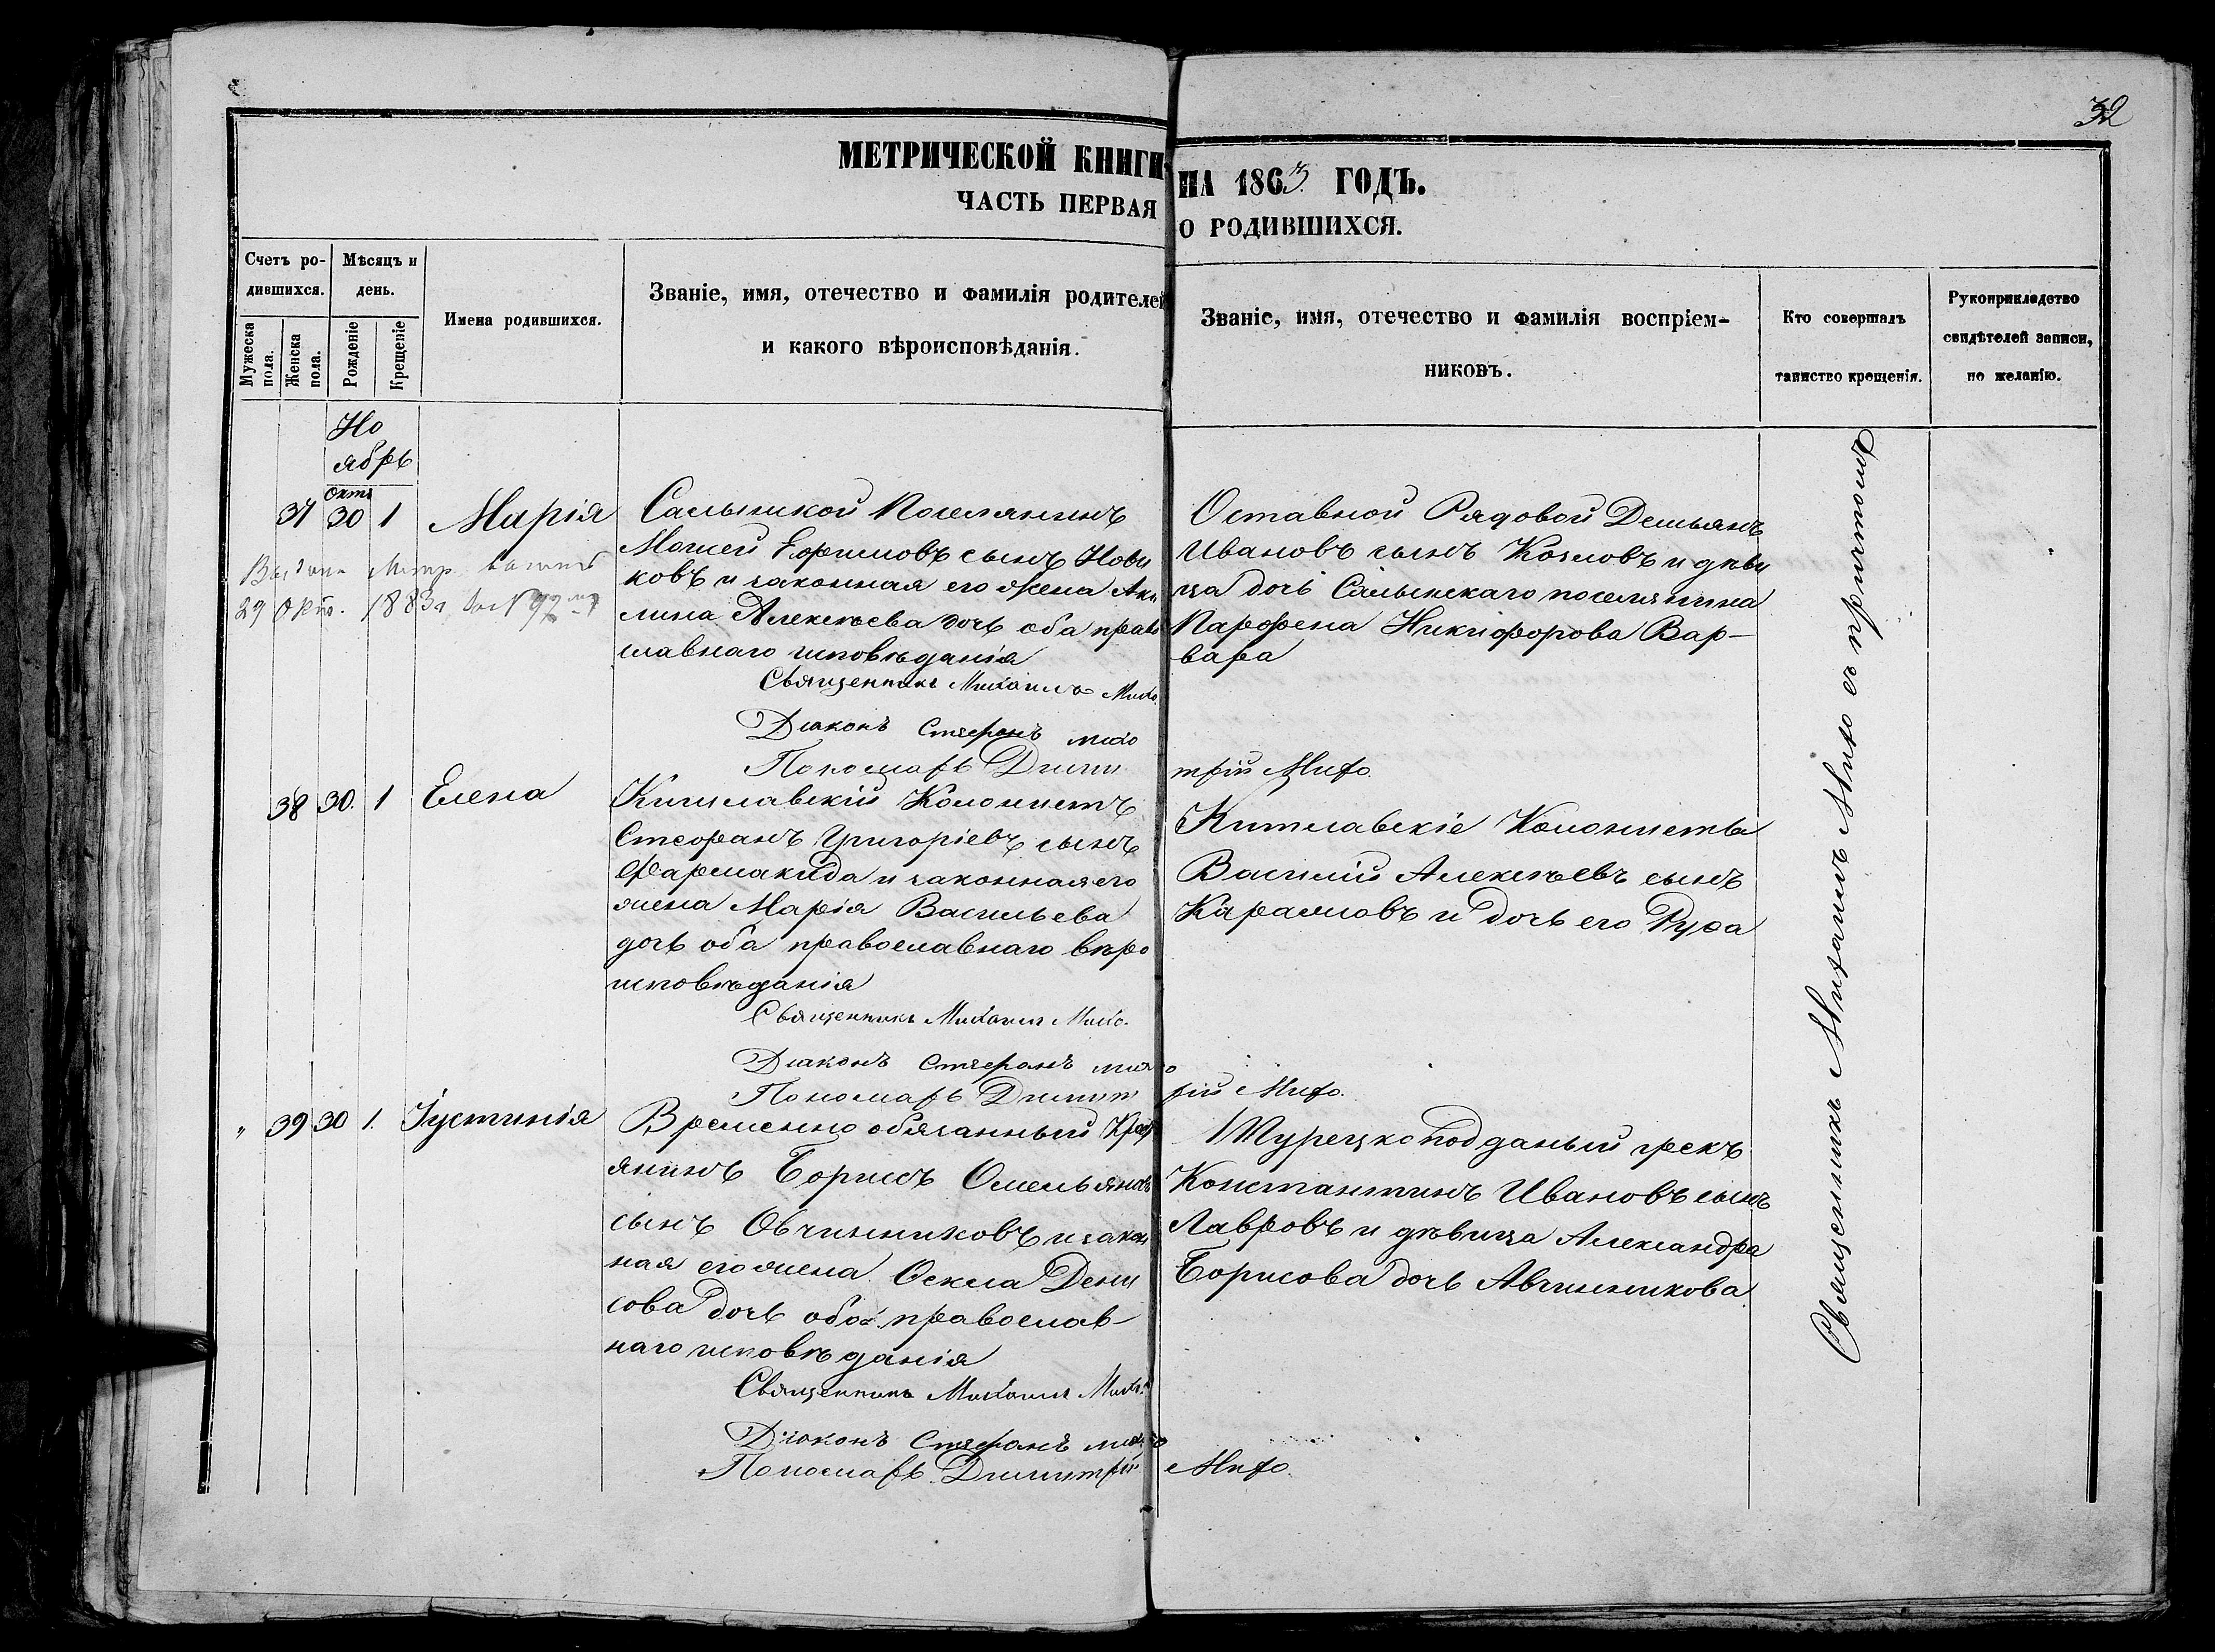 32
МЕТРИЧЕСКОЙ КНИГИ НА 1863 ГОДЪ.
ЧАСТЬ ПЕРВАЯ О РОДИВШИХСЯ.
Счетъ ро-
дившихся.
Мужеска пола.
Женска пола.
Мѣсяцъ и
день.
Рожденіе
Крещеніе
Имена родившихся.
Званіе, имя, отечество и фамилія родителей
и какого вѣроисповѣданія.
Званіе, имя, отечество и фамилія воспріем-
никовъ.
Кто совершалъ
таинство крещенія.
Рукоприкладство
свидѣтелей записи,
по желанію.
Но
ябрь
Окт
37 30 1 Марія
Салынской Поселянинъ
Моисей Ефимовъ сынъ Нови
ковъ и законная его жена Аку
лина Алексѣева дочь оба право
славнаго исповѣданія
Священникъ Михаилъ Михо
Діаконъ Стефанъ михо
Пономарь Димитрій Михо.
Оставной Рядовой Демьянъ
Ивановъ сынъ Козловъ и дѣви
ца дочь Салынскаго поселянина
Парфена Никифорова Вар-
вара
29 Окт. 1883 97
38 30. 1 Елена
Кишлавскій Колонистъ
Стефанъ Григоріевъ сынъ
Фармакида и законная его
жена Марія Васильева
дочь оба православнаго вѣро
исповѣданія
Священникъ Михаилъ Михо.
Діаконъ Стефанъ михо
Пономарь Димитрій Михо.
Кишлавскіе Колонисты
Василій Алексѣевъ сынъ
Карамовъ и дочь его Руфа
" 39 30 1. Іустинія
Временно обязанный Крест
янинъ Борисъ Омельяновъ
сынъ Овчинниковъ и закон
ная его жена Оекла Дени
сова дочь оба православ
наго исповѣданія
Священникъ Михаилъ Михо
Діаконъ Стефанъ михо
Пономарь Димитрій Михо.
Турецкоподданый грекъ
Константинъ Ивановъ сынъ
Лавровъ и дѣвица Александра
Борисова дочь Авчинникова
Священникъ Михаилъ Михо съ причтомъ